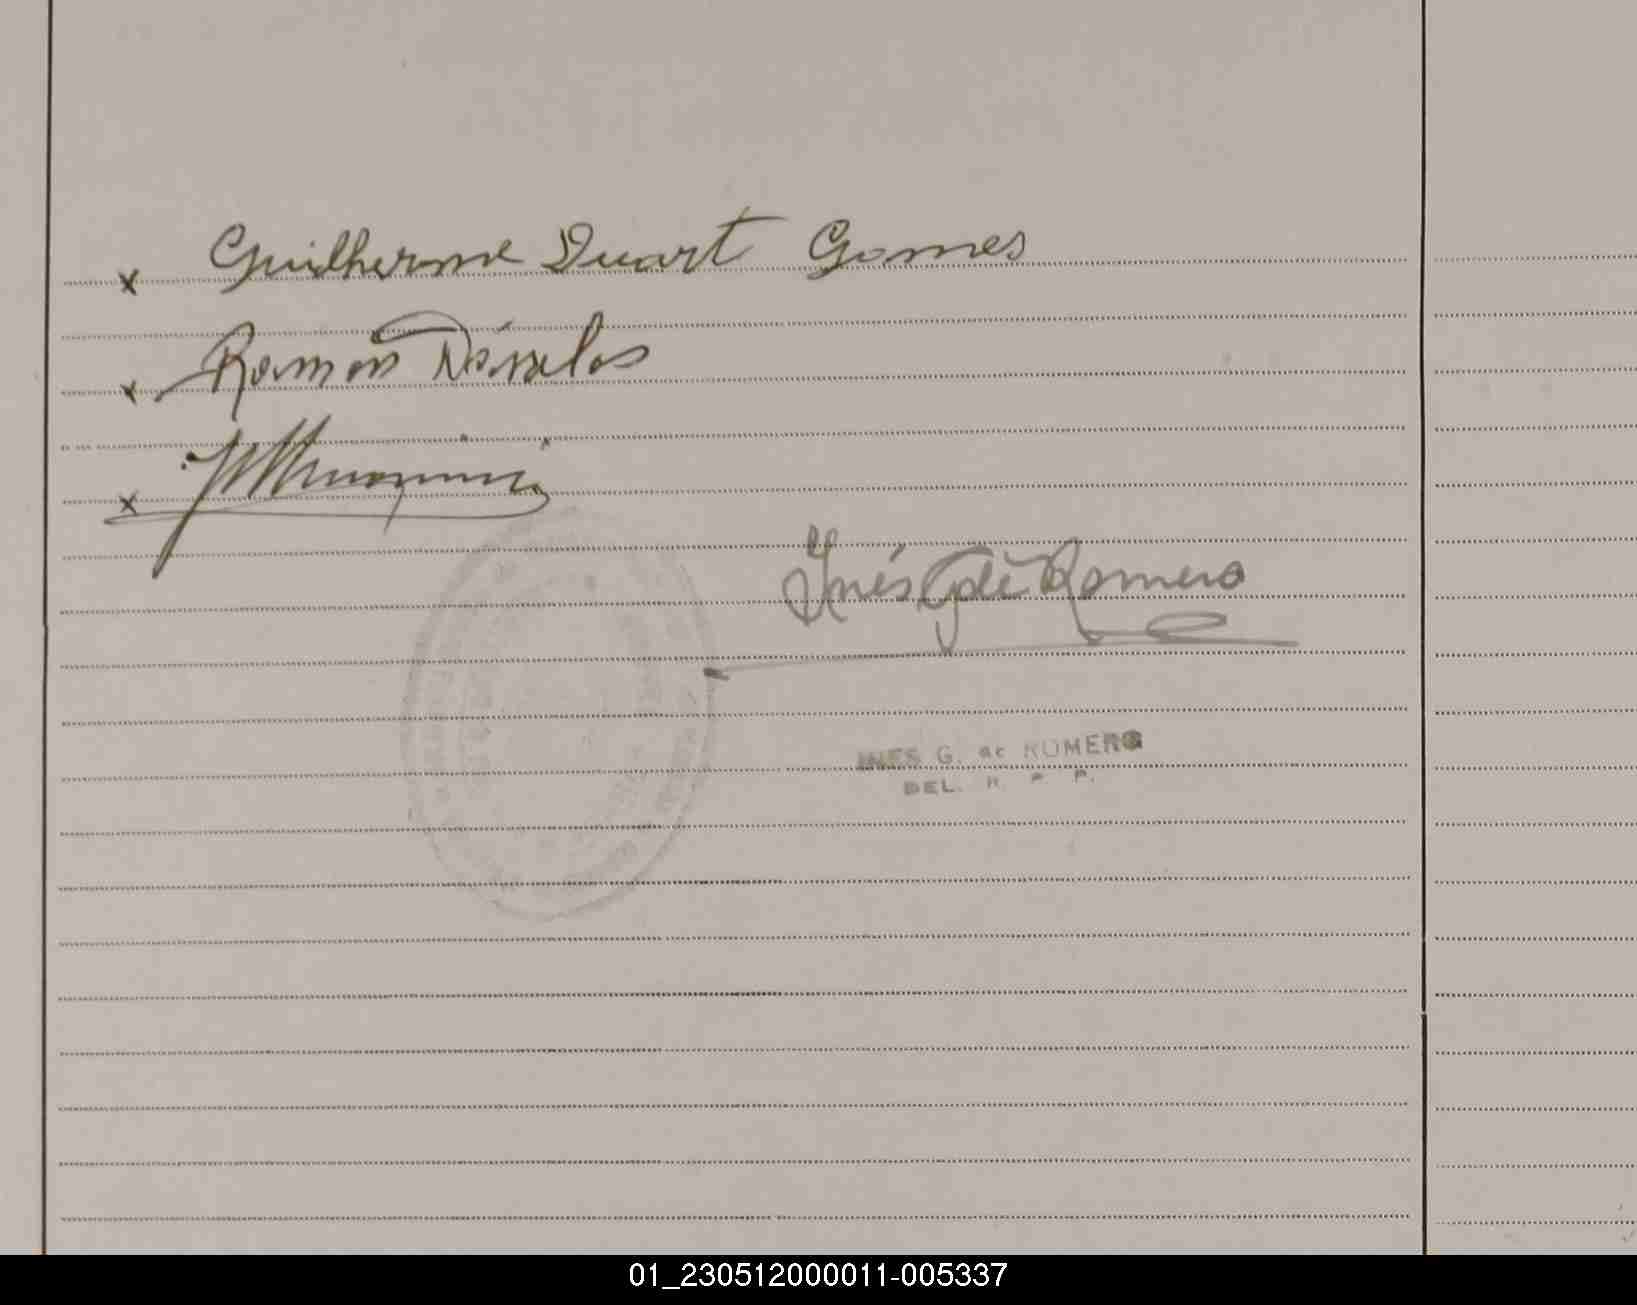 x Guilherme Duart Gomes
x Ramón Dávalos
x
Inés G de Romero
INES G. de ROMERO
DEL. R. P. P.
01_230512000011-005337